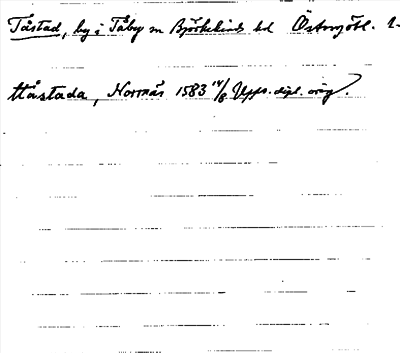 Tåstad, by i Tåby sn Björkekinds hd Östergötl. l-
Håstada, Norrnäs 1583 14/8 Upps. dipl. orig.